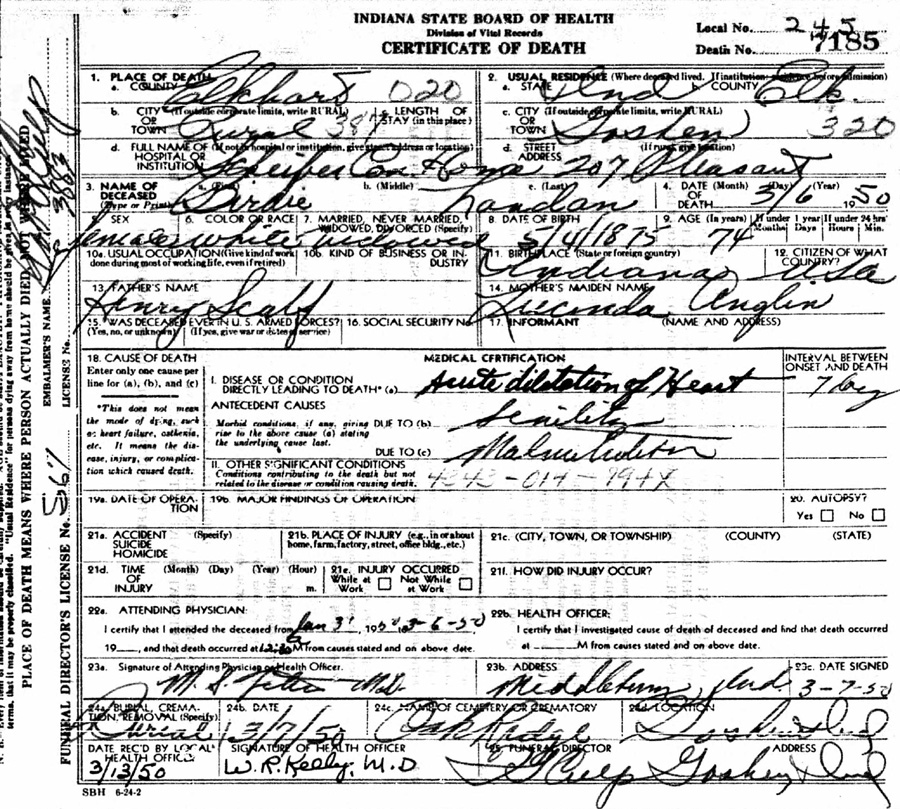 INDIANA STATE BOARD OF HEALTH
Division of Vital Records
CERTIFICATE OF DEATH
Local No. 245
Death No. 7185
1. PLACE OF DEATH
a. COUNTY Elkhart 020
b. CITY (If outside corporate limits, write RURAL) OR TOWN Rural
c. LENGTH OF STAY (in this place)
d. FULL NAME OF (If not in hospital or institution, give street address or location) HOSPITAL OR INSTITUTION Scheifer Con. Home
2. USUAL RESIDENCE (Where deceased lived. If institution: residence before admission)
a. STATE Ind b. COUNTY Elk.
c. CITY (If outside corporate limits, write RURAL) OR TOWN Goshen 320
d. STREET (If rural, give location) ADDRESS 207 Pleasant
3. NAME OF DECEASED (Type or Print) a. (First) Birdie b. (Middle) c. (Last) Landan
4. DATE (Month) (Day) (Year) OF DEATH 3/6/1950
5. SEX female
6. COLOR OR RACE white
7. MARRIED, NEVER MARRIED, WIDOWED, DIVORCED (Specify) widowed
8. DATE OF BIRTH 5/4/1875
9. AGE (In years) 74 If under 1 year Months Days If under 24 hrs Hours Min.
10a. USUAL OCCUPATION (Give kind of work done during most of working life, even if retired)
10b. KIND OF BUSINESS OR INDUSTRY
11. BIRTHPLACE (State or foreign country) Indiana
12. CITIZEN OF WHAT COUNTRY? USA
13. FATHER'S NAME Henry Scalf
14. MOTHER'S MAIDEN NAME Lucinda Anglin
15. WAS DECEASED EVER IN U. S. ARMED FORCES? (Yes, no, or unknown) (If yes, give war or dates of service)
16. SOCIAL SECURITY No.
17. INFORMANT (NAME AND ADDRESS)
18. CAUSE OF DEATH
Enter only one cause per line for (a), (b), and (c)
*This does not mean the mode of dying, such as heart failure, asthenia, etc. It means the disease, injury, or complication which caused death.
MEDICAL CERTIFICATION
INTERVAL BETWEEN ONSET AND DEATH
I. DISEASE OR CONDITION DIRECTLY LEADING TO DEATH* (a) Acute dilatation of Heart 7
ANTECEDENT CAUSES
Morbid conditions, if any, giving rise to the above cause (a) stating the underlying cause last.
DUE TO (b) Senility
DUE TO (c) Malnutrition
II. OTHER SIGNIFICANT CONDITIONS
Conditions contributing to the death but not related to the disease or condition causing death.
19a. DATE OF OPERATION
19b. MAJOR FINDINGS OF OPERATION
20. AUTOPSY?
Yes No
21a. ACCIDENT SUICIDE HOMICIDE (Specify)
21b. PLACE OF INJURY (e.g., in or about home, farm, factory, street, office bldg., etc.)
21c. (CITY, TOWN, OR TOWNSHIP) (COUNTY) (STATE)
21d. TIME OF INJURY (Month) (Day) (Year) (Hour) m.
21e. INJURY OCCURRED While at Work Not While at Work
21f. HOW DID INJURY OCCUR?
22a. ATTENDING PHYSICIAN:
I certify that I attended the deceased from Jan 31, 1950, 3-6-50
19___, and that death occurred at M from causes stated and on above date.
22b. HEALTH OFFICER:
I certify that I investigated cause of death of deceased and find that death occurred at ___M from causes stated and on above date.
23a. Signature of Attending Physician or Health Officer. M. S. M.D.
23b. ADDRESS Middlebury, Ind.
23c. DATE SIGNED 3-7-50
24a. BURIAL, CREMATION, REMOVAL (Specify) Burial
24b. DATE 3/7/50
24c. NAME OF CEMETERY OR CREMATORY Oak Ridge
24d. LOCATION Goshen Ind
DATE REC'D BY LOCAL HEALTH OFFICE 3/13/50
SIGNATURE OF HEALTH OFFICER W. R. Kelly, M. D.
25. FUNERAL DIRECTOR Culp ADDRESS Goshen Ind
SBH 6-24-2
PLACE OF DEATH MEANS WHERE PERSON ACTUALLY DIED, NOT WHERE
EMBALMER'S NAME
LICENSE No. 3883
FUNERAL DIRECTOR'S LICENSE No. 567